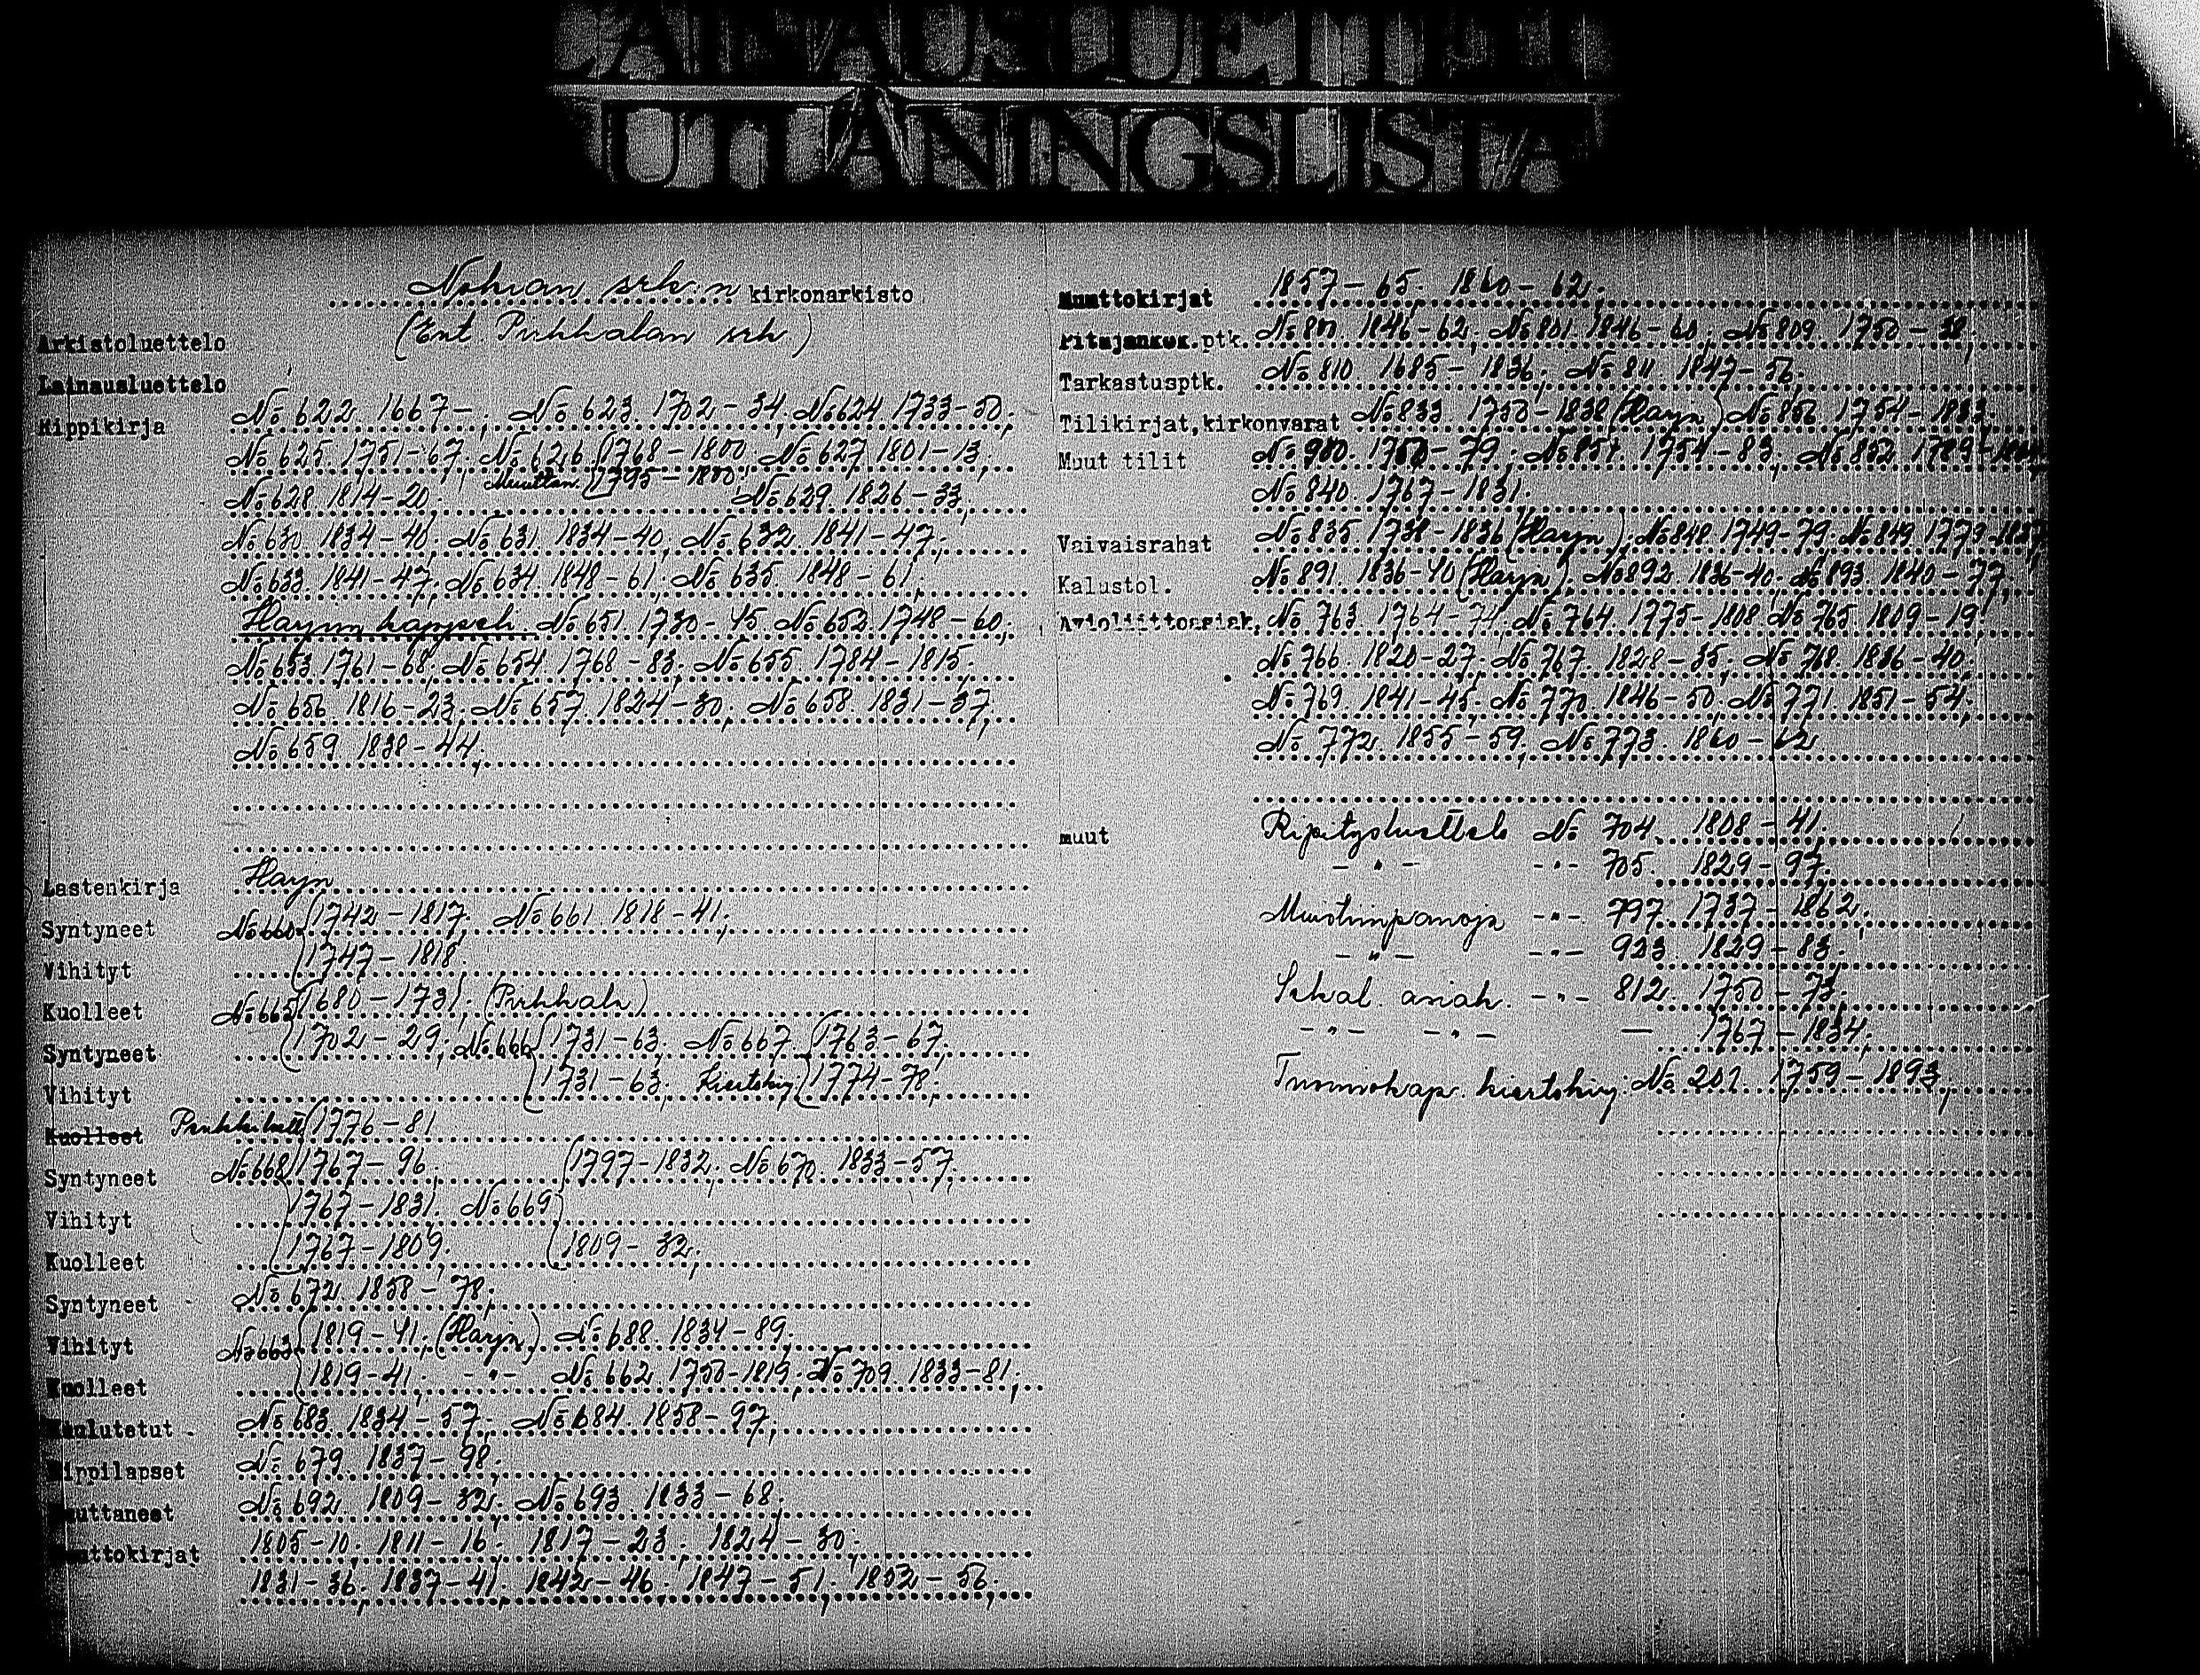 LAINAUSLUETTELO
UTLÅNINGSLISTA
Nokian srk:n kirkonarkisto
(Ent. Pirkkalan srk)
Arkistoluettelo
Lainausluettelo
Rippikirja No 622 1667-; No 623. 1702-34; No 624 1733-50;
No 625. 1751-67; No 626 1768-1800; No 627 1801-13;
Muuttan. 1795-1800;
No 628 1814-20; No 629. 1826-33;
No 630 1834-40; No 631 1834-40; No 632 1841-47;
No 633 1841-47; No 634. 1848-61; No 635. 1848-61;
Harjun kappeli. No 651 1730-45 No 652. 1748-60;
No 653 1761-68; No 654. 1768-83; No 655. 1784-1815;
No 656 1816-23; No 657 1824-30; No 658 1831-37;
No 659 1838-44;
Lastenkirja Harju
Syntyneet No 660 1742-1817; No 661. 1818-41;
Vihityt 1747-1818
Kuolleet No 665 1680-1731; (Pirkkala)
Syntyneet 1702-29; No 666 1731-63; No 667 1763-67;
Vihityt 1731-63; Kiertokirj. 1774-78;
Kuolleet 1776-81
Syntyneet No 668 1767-96; 1797-1832; No 670. 1833-57;
Vihityt 1767-1831. No 669
Kuolleet 1767-1809; 1809-32;
Syntyneet No 672 1858-78;
Vihityt No 663 1819-41; (Harju) No 688. 1834-89;
Kuolleet 1819-41; -"- No 662 1750-1819; No 709. 1833-81;
Kuulutetut No 683 1834-57; No 684. 1858-97;
Rippilapset No 679 1837-98;
Muuttaneet No 692 1809-32; No 693 1833-68;
Muuttokirjat 1805-10; 1811-16; 1817-23; 1824-30;
1831-36; 1837-41; 1842-46; 1847-51; 1852-56;
Muuttokirjat 1857-65; 1860-62;
Pitäjänkok.ptk. 1846-62; No 801 1846-60; No 809 1750-38;
Tarkastusptk. No 810 1685-1836; No 811 1847-56;
Tilikirjat,kirkonvarat No 833 1750-1838 (Harju) No 856 1754-1833;
Muut tilit 1754-83; No 852
No 840. 1767-1831.
Vaivaisrahat No 835 1738-1836 (Harju); No 848 1749-79 No 849 1779-1837
Kalustol. No 891. 1836-40 (Harju); No 892 1836-40; No 893. 1840-77;
Avioliittoasiak. No 763. 1764-74; No 764. 1775-1808 No 765 1809-19;
No 766. 1820-27; No 767. 1828-35; No 768. 1836-40;
No 769. 1841-45; No 770. 1846-50; No 771. 1851-54;
No 772. 1855-59; No 773. 1860-62
muut Ripitysluettelo No 704. 1808-41.
-"- -"- 705. 1829-97.
Muistiinpanoja -"- 797. 1737-1862;
-"- -"- 923 1829-83;
Sekal. asiak. -"- 812. 1750-73;
-"- -"- — 1767-1834;
Tuomiokap. kiertokirj. No 201. 1759-1893,